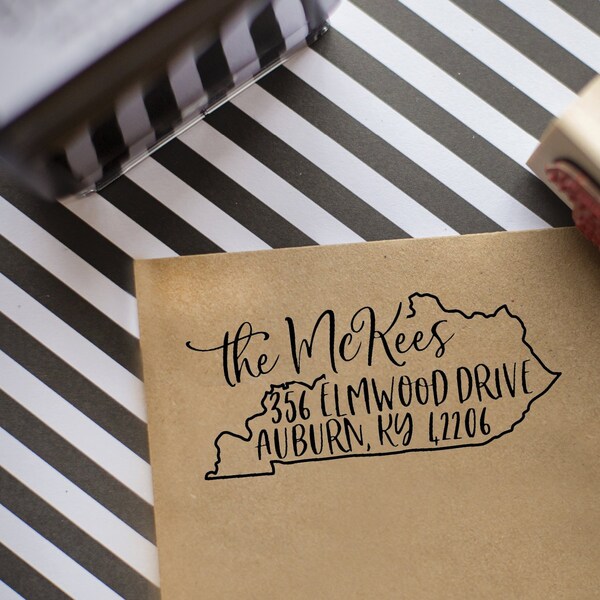 the McKees
356 ELMWOOD DRIVE
AUBURN, KY 42206